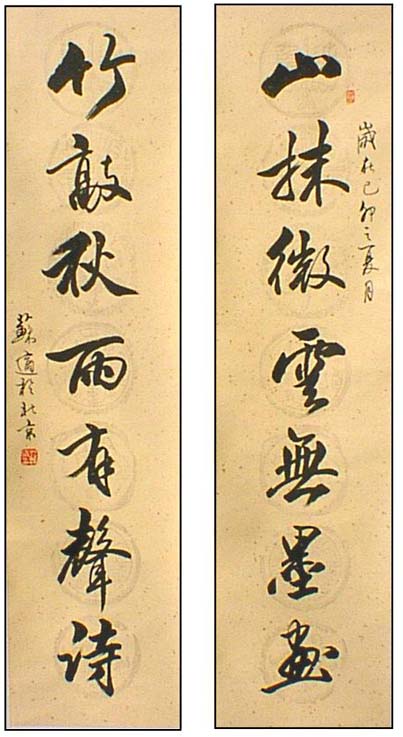 歲在己卯之夏月
山抹微雲無墨畫
竹敲秋雨有聲詩
蘇適於北京